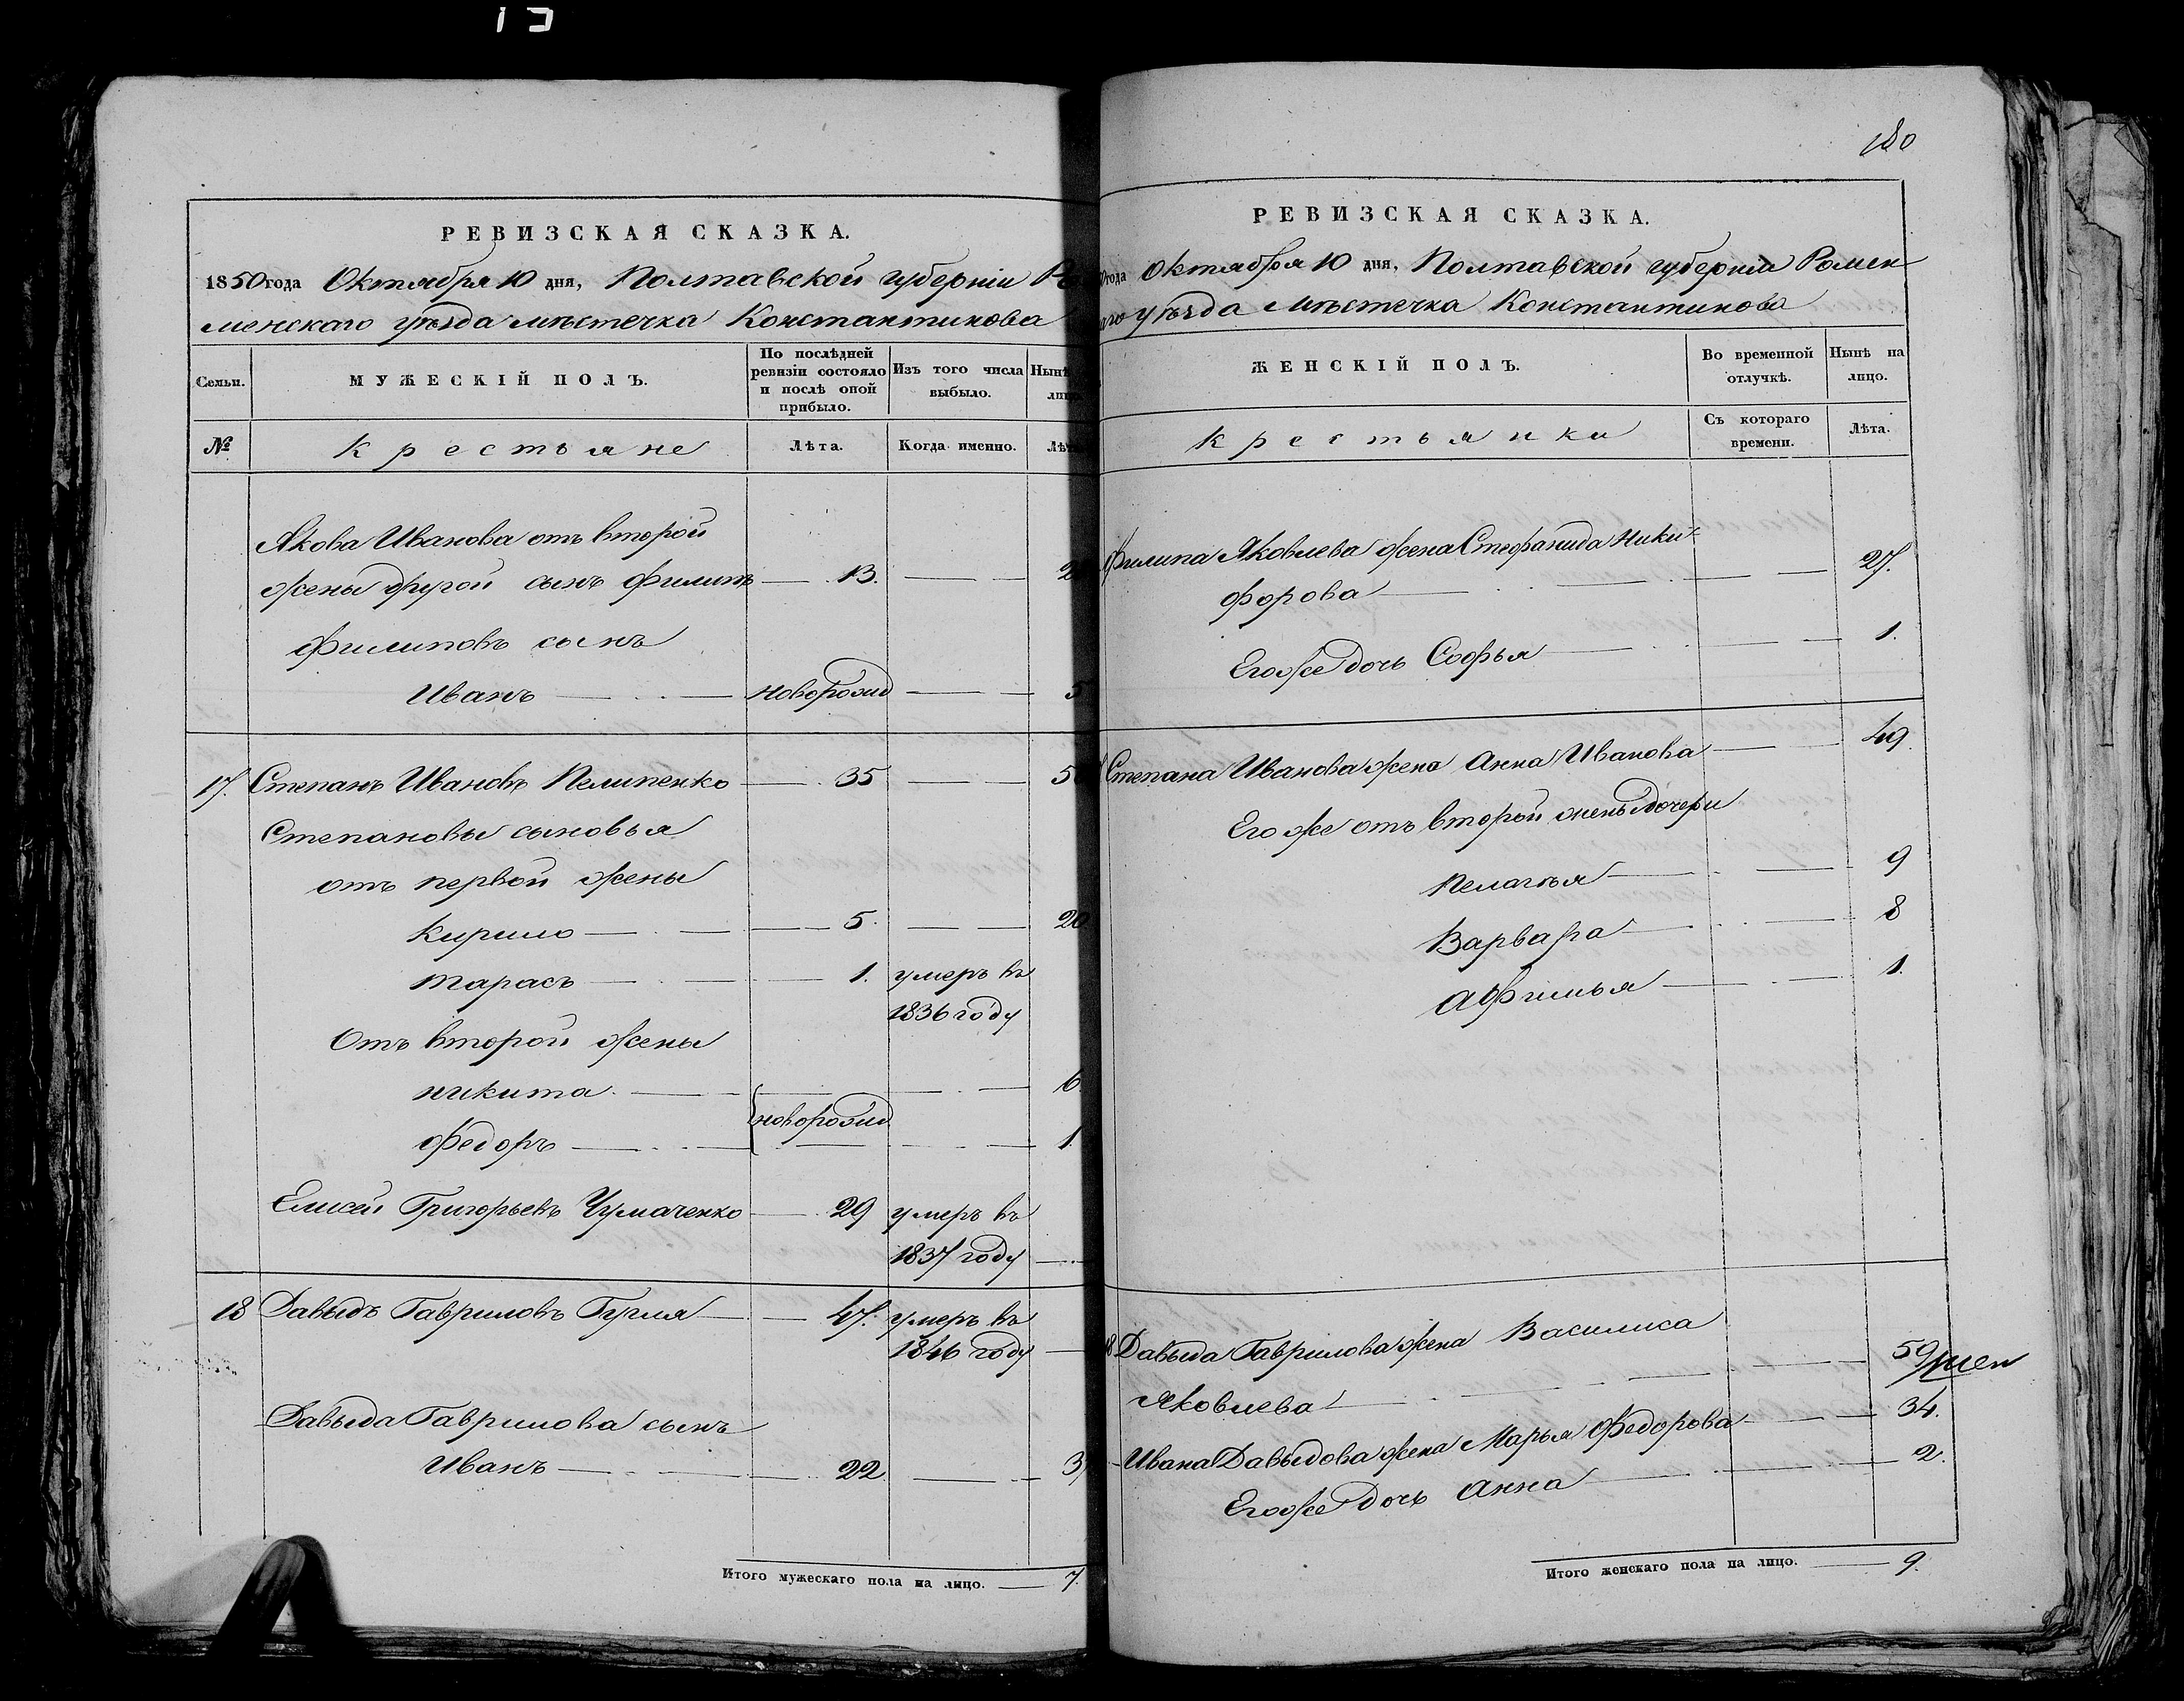 РЕВИЗСКАЯ СКАЗКА.
1850 года Октября 10 дня, Полтавской губерніи Ро
менскаго уѣзда мѣстечка Константинова
Семьи. МУЖЕСКІЙ ПОЛЪ. По послѣдней ревизіи состояло и послѣ оной прибыло. Изъ того числа выбыло. Нынѣ
№ Крестьяне Лѣта. Когда именно.
Якова Иванова отъ второй
жены другой сынъ Филипъ 13.
Филиповъ сынъ
Иванъ новорожд 5
17. Степанъ Ивановъ Пелипенко 35 50
Степановы сыновья
отъ первой жены
Кирило 5. 20
Тарасъ 1. умеръ въ
1836 году
Отъ второй жены
Никита 6
новорожд
Федоръ 1.
Елисей Григорьевъ Чумаченко 29 умеръ въ
1837 году
18 Давыдъ Гавриловъ Гугля 47. умеръ въ
1846 году
Давыда Гаврилова сынъ
Иванъ 22 3
Итого мужескаго пола на лицо. 7.
180
РЕВИЗСКАЯ СКАЗКА.
года Октября 10 дня, Полтавской губерніи Ромен
аго уѣзда мѣстечка Константинова
ЖЕНСКІЙ ПОЛЪ. Во временной отлучкѣ. Нынѣ на лицо.
Крестьянки Съ котораго времени. Лѣта.
Филипа Яковлева жена Стефанида Ники-
форова 27.
Его же дочь Софья 1.
Степана Иванова жена Анна Иванова 49.
Его же отъ второй жены дочери
Пелагья 9
Варвара 8
Афимья 1.
18 Давыда Гаврилова жена Василиса
Яковлева 59
Ивана Давыдова жена Марья Федорова 34.
Его же дочь Анна 2.
Итого женскаго пола на лицо. 9.